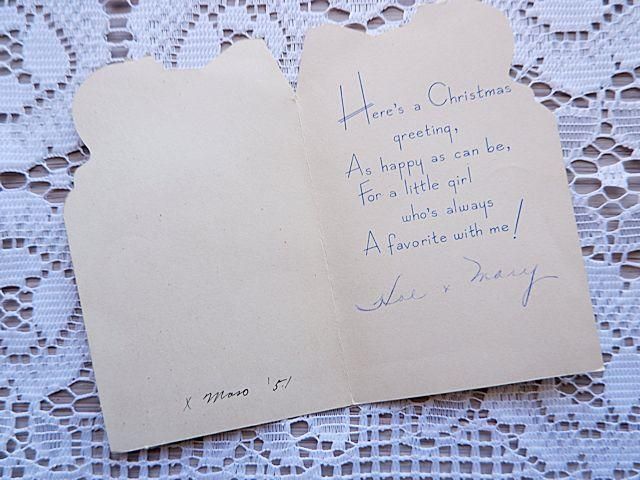 Here's a Christmas
greeting,
As happy as can be,
For a little girl
who's always
A favorite with me!
+ Mary
X Mas '51